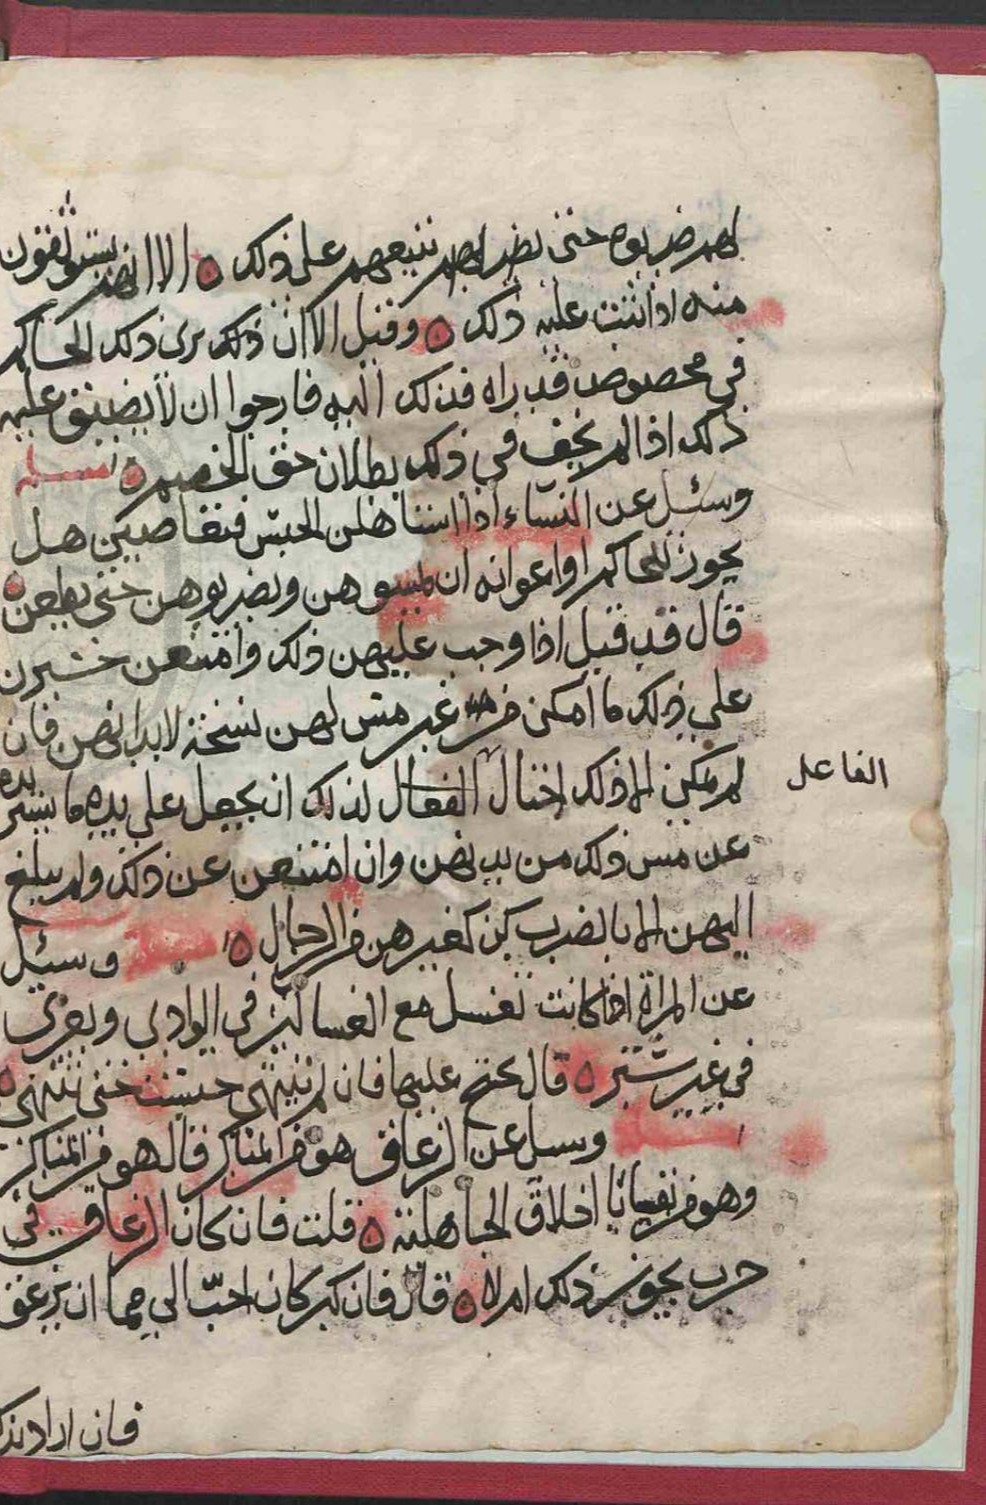 لهم ضربوه حتى نضر لهم نتبعهم على ذلك ه الا انهم يستوثقون
منه اذا ثبت عليه ذلك ه وقيل الا ان ذلك يرى ذلك الحاكم
في مخصوص قد راه فذلك اليه فارجوا ان لا يضيق عليه
ذلك اذا لم يخف في ذلك بطلان حق الخصم ه مسئلة
وسئل عن النساء اذا استاهلن الحبس فتقاصين هل
يجوز للحاكم او اعوانه ان يمسوهن ويضربوهن حتى يطعن ه
قال قد قيل اذا وجب عليهن ذلك وامتنعن جبرن
على ذلك ما امكن من غير مس لهن نسخة لابدانهن فان
لم يمكن الا ذلك احتال الفعال لذلك ان يجعل على يده ما يستر يده
الفاعل
عن مس ذلك من بدنهن وان امتنعن عن ذلك ولم يبلغ
اليهن الا بالضرب كن كغيرهن من الرجال ه وسئل
عن المراة اذا كانت تغسل مع الغسالين في الوادي وتعرى
في غير ستر ه قال يحتج عليها فان لم تنتهي حبست حتى تنتهي ه
وسيل عن الزعاق هو من المناكر قال هو من المناكر
وهو من بقيانا اخلاق الجاهلية ه قلت فان كان الزعاق في
حرب يجوز ذلك ام لا ه قال فان كبر كان احب الي مما ان يزعق
فان اراد بذلك